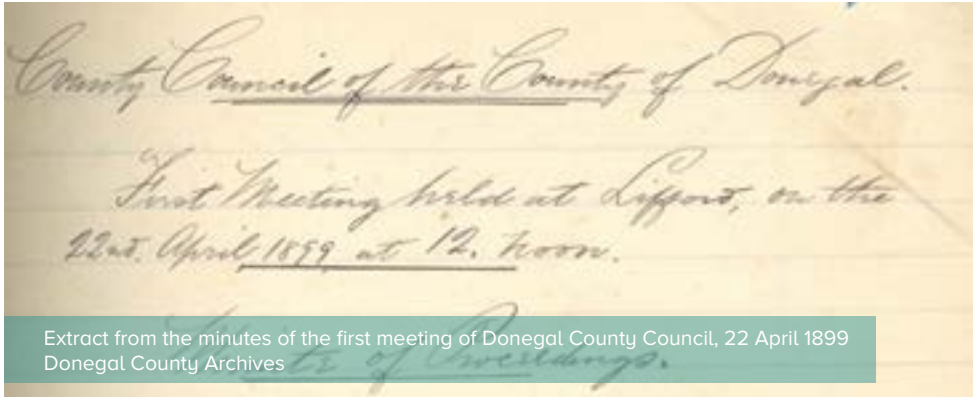 County Council of the County of Donegal.
First Meeting held at Lifford, on the
22nd. April 1899 at 12. noon.
Minute of Proceedings.
Extract from the minutes of the first meeting of Donegal County Council, 22 April 1899
Donegal County Archives